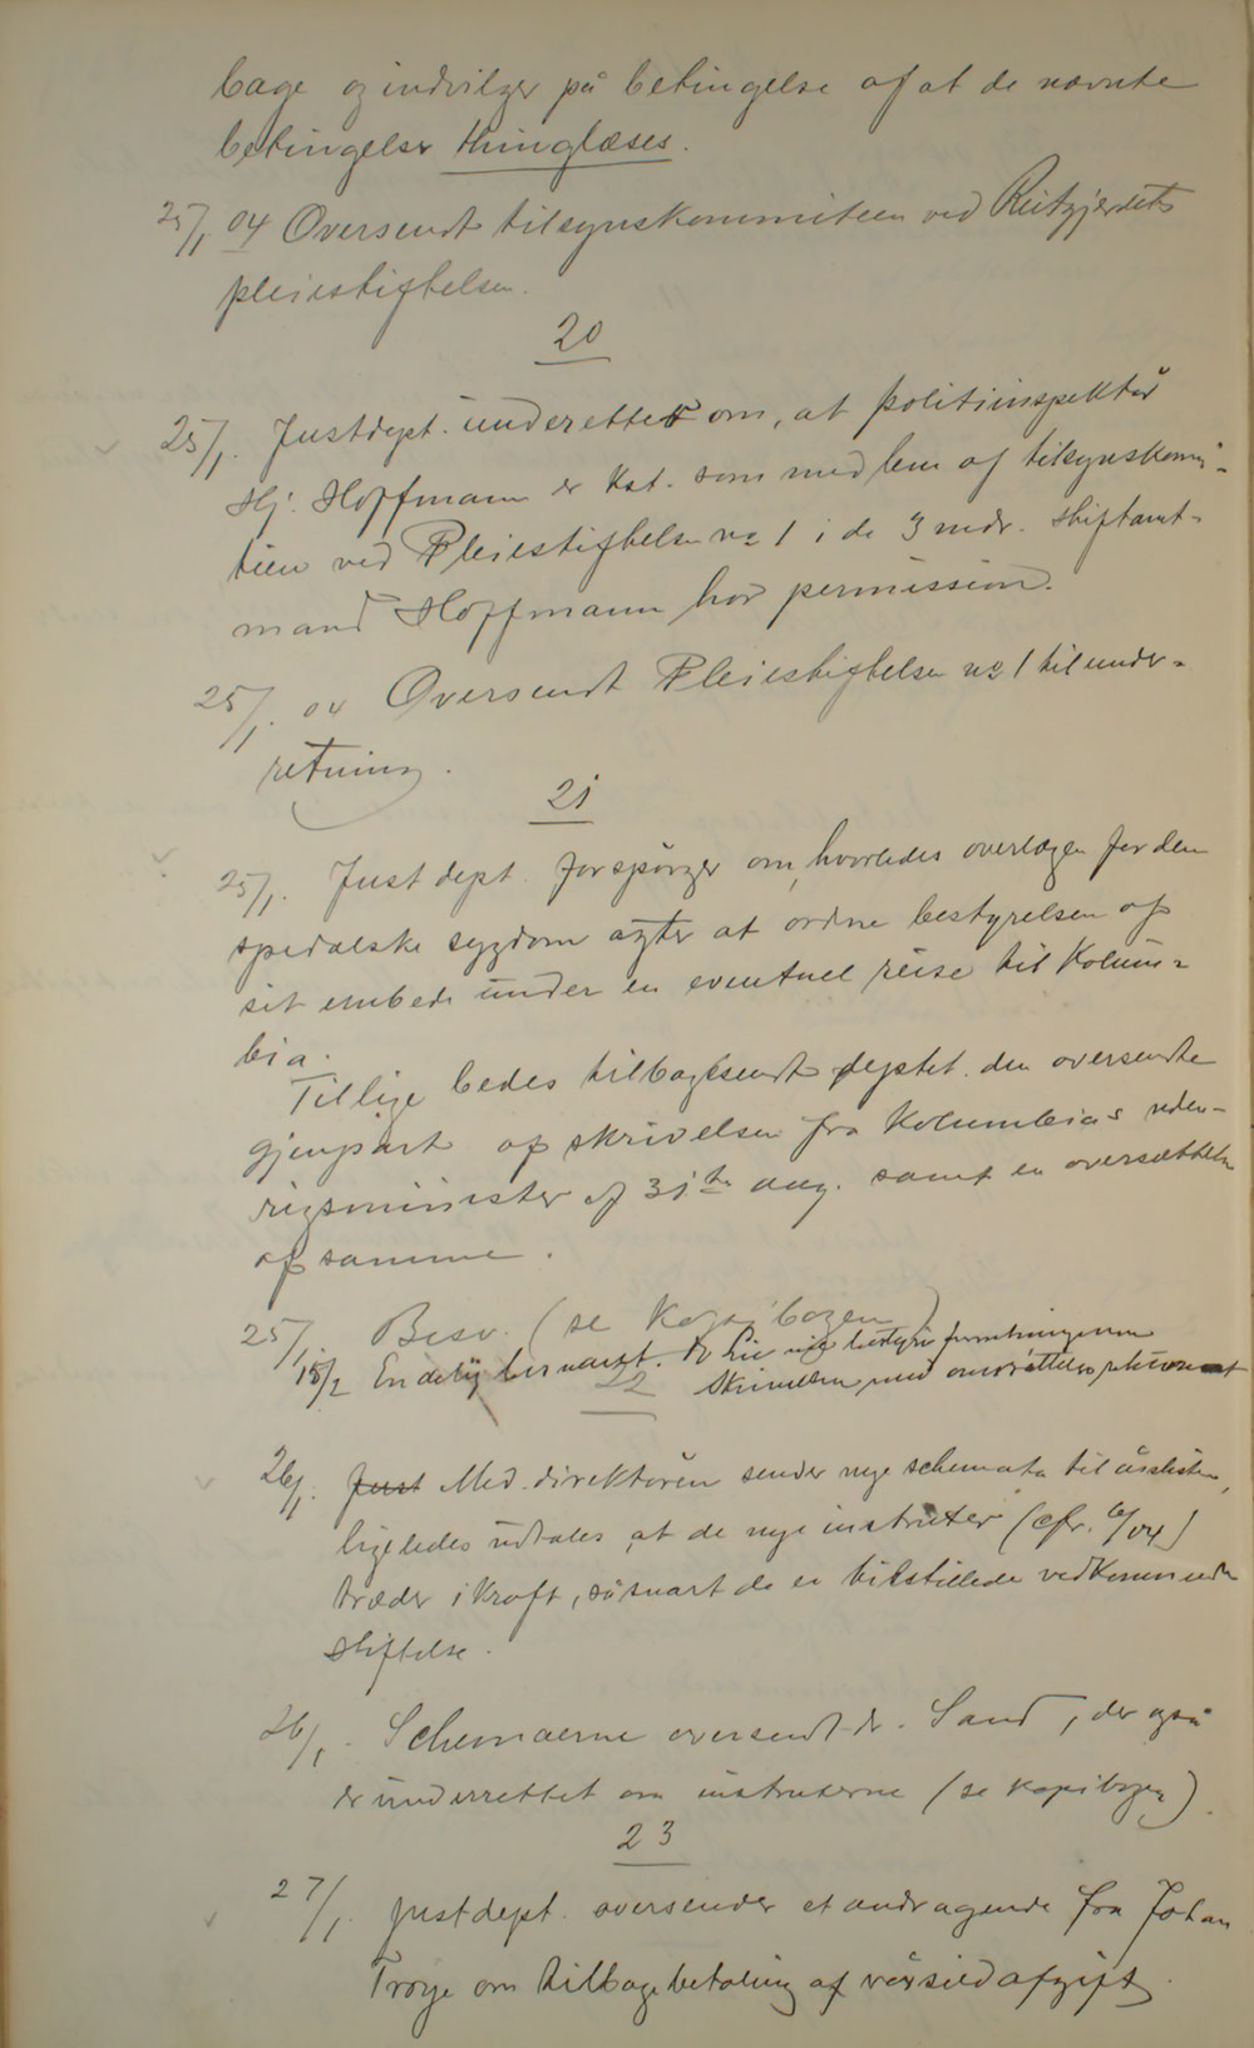 bage og indvilger på betingelse af at de nævnte
betingelser thinglæses.
25/1 04 Oversendt tilsynskommiteen ved Reitgjerdets
pleiestiftelsen.
20
25/1. Justdept. underetter om, at politiinspektør
Hj. Hoffmann er kst. som medlem af tilsynskomi-
teen ved Pleiestiftelsen no 1 i de 3 mdr. stiftamt-
mand Hoffmann har permission.
25/1. 04 Oversendt Pleiestiftelsen no 1 til under-
retning.
21
25/1. Justdept. forspørger om, hvorledes overlægen for den
spedalske sygdom agter at ordne bestyrelsen af
sit embede under en eventuel reise til Kolum-
bia.
Tillige bedes tilbagesendt deptet. den oversendte
gjenpart af skrivelsen fra Kolumbias uden-
rigsminister af 31te aug. samt en oversættelse
af samme.
25/1 Besv. (se Kopibogen)
15/2 Endelig besvaret. Dr Lie vil bestyre forretningerne
22 Skrivelsen med oversættelse
26/1. Just Med. direktøren sender nye schemata til årslisten,
ligeledes udtales, at de nye instruxer (cfr. 6/04)
træder i kraft, såsnart de er tilstillede vedkommende
stiftelse.
26/1. Schemaerne oversendt dr. Sand, der også
er underrettet om instruxerne (se kopibogen).
23
27/1. justdept. oversender et andragende fra Johan
Troye om tilbagebetaling af vårsildafgift.